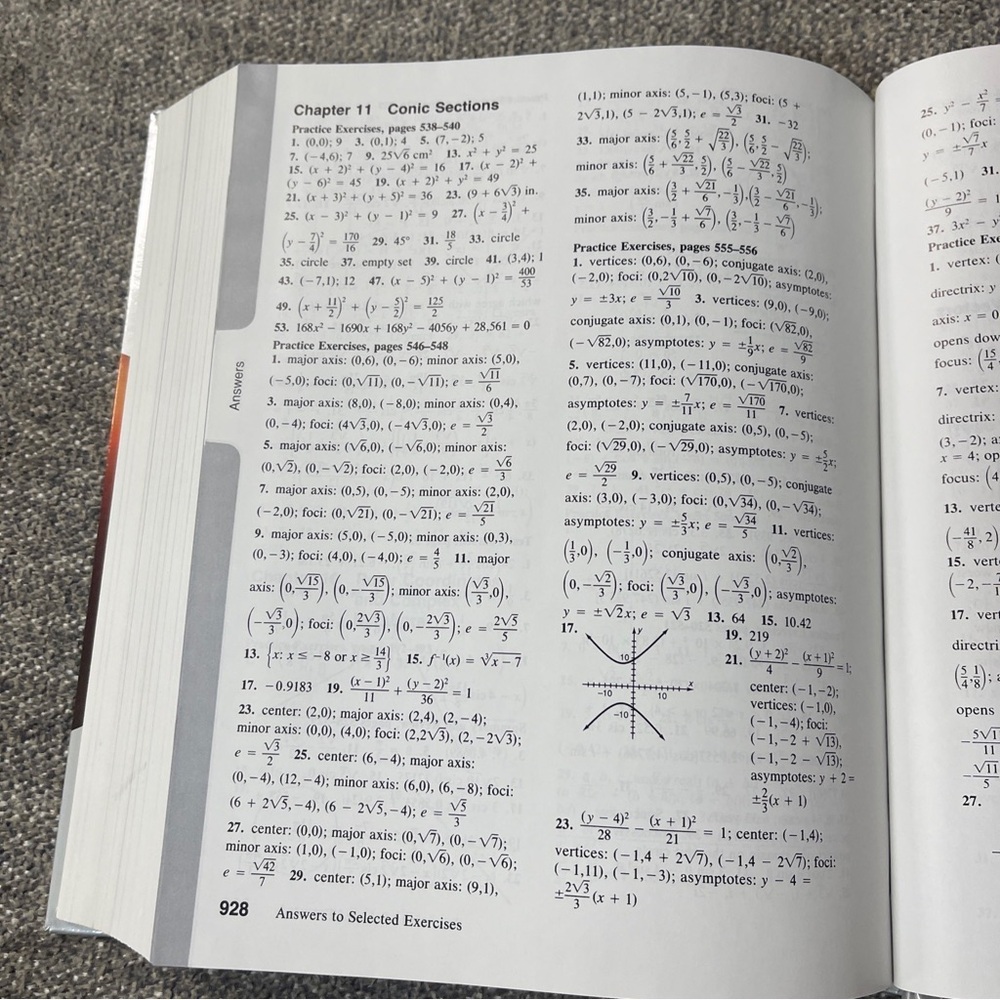 Chapter 11 Conic Sections
Practice Exercises, pages 538–540
1. (0,0); 9 3. (0,1); 4 5. (7,−2); 5
7. (−4,6); 7 9. 25√6 cm² 13. x² + y² = 25
15. (x + 2)² + (y − 4)² = 16 17. (x − 2)² +
(y − 6)² = 45 19. (x + 2)² + y² = 49
21. (x + 3)² + (y + 5)² = 36 23. (9 + 6√3) in.
25. (x − 3)² + (y − 1)² = 9 27. (x − 3/4)² +
(y − 7/4)² = 170/16 29. 45° 31. 18/5 33. circle
35. circle 37. empty set 39. circle 41. (3,4); 1
43. (−7,1); 12 47. (x − 5)² + (y − 1)² = 400/53
49. (x + 11/2)² + (y − 5/2)² = 125/2
53. 168x² − 1690x + 168y² − 4056y + 28,561 = 0
Practice Exercises, pages 546–548
1. major axis: (0,6), (0,−6); minor axis: (5,0),
(−5,0); foci: (0,√11), (0,−√11); e = √11/6
3. major axis: (8,0), (−8,0); minor axis: (0,4),
(0,−4); foci: (4√3,0), (−4√3,0); e = √3/2
5. major axis: (√6,0), (−√6,0); minor axis:
(0,√2), (0,−√2); foci: (2,0), (−2,0); e = √6/3
7. major axis: (0,5), (0,−5); minor axis: (2,0),
(−2,0); foci: (0,√21), (0,−√21); e = √21/5
9. major axis: (5,0), (−5,0); minor axis: (0,3),
(0,−3); foci: (4,0), (−4,0); e = 4/5 11. major
axis: (0,√15/3), (0,−√15/3); minor axis: (√3/3,0),
(−√3/3,0); foci: (0,2√3/3), (0,−2√3/3); e = 2√5/5
13. {x: x ≤ −8 or x ≥ 14/3} 15. f⁻¹(x) = ∛x − 7
17. −0.9183 19. (x − 1)²/11 + (y − 2)²/36 = 1
23. center: (2,0); major axis: (2,4), (2,−4);
minor axis: (0,0), (4,0); foci: (2,2√3), (2,−2√3);
e = √3/2 25. center: (6,−4); major axis:
(0,−4), (12,−4); minor axis: (6,0), (6,−8); foci:
(6 + 2√5,−4), (6 − 2√5,−4); e = √5/3
27. center: (0,0); major axis: (0,√7), (0,−√7);
minor axis: (1,0), (−1,0); foci: (0,√6), (0,−√6);
e = √42/7 29. center: (5,1); major axis: (9,1),
(1,1); minor axis: (5,−1), (5,3); foci: (5 +
2√3,1), (5 − 2√3,1); e = √3/2 31. −32
33. major axis: (5/6,5/2 + √22/3), (5/6,5/2 − √22/3);
minor axis: (5/6 + √22/3,5/2), (5/6 − √22/3,5/2)
35. major axis: (3/2 + √21/6,−1/3), (3/2 − √21/6,−1/3);
minor axis: (3/2,−1/3 + √7/6), (3/2,−1/3 − √7/6)
Practice Exercises, pages 555–556
1. vertices: (0,6), (0,−6); conjugate axis: (2,0),
(−2,0); foci: (0,2√10), (0,−2√10); asymptotes:
y = ±3x; e = √10/3 3. vertices: (9,0), (−9,0);
conjugate axis: (0,1), (0,−1); foci: (√82,0),
(−√82,0); asymptotes: y = ±1/9x; e = √82/9
5. vertices: (11,0), (−11,0); conjugate axis:
(0,7), (0,−7); foci: (√170,0), (−√170,0);
asymptotes: y = ±7/11x; e = √170/11 7. vertices:
(2,0), (−2,0); conjugate axis: (0,5), (0,−5);
foci: (√29,0), (−√29,0); asymptotes: y = ±5/2x;
e = √29/2 9. vertices: (0,5), (0,−5); conjugate
axis: (3,0), (−3,0); foci: (0,√34), (0,−√34);
asymptotes: y = ±5/3x; e = √34/5 11. vertices:
(1/3,0), (−1/3,0); conjugate axis: (0,√2/3),
(0,−√2/3); foci: (√3/3,0), (−√3/3,0); asymptotes:
y = ±√2x; e = √3 13. 64 15. 10.42
17.
y
10
x
−10 10
−10
19. 219
21. (y + 2)²/4 − (x + 1)²/9 = 1;
center: (−1,−2);
vertices: (−1,0),
(−1,−4); foci:
(−1,−2 + √13),
(−1,−2 − √13);
asymptotes: y + 2 =
±2/3(x + 1)
23. (y − 4)²/28 − (x + 1)²/21 = 1; center: (−1,4);
vertices: (−1,4 + 2√7), (−1,4 − 2√7); foci:
(−1,11), (−1,−3); asymptotes: y − 4 =
±2√3/3(x + 1)
Answers
928 Answers to Selected Exercises
25. y² − x²/7
(0,−1); foci:
y = ±√7/7x
(−5,1) 31.
(y − 2)²/9 = 1
37. 3x² − y
Practice Exe
1. vertex: (
directrix: y
axis: x = 0
opens dow
focus: (15/4
7. vertex:
directrix:
(3,−2); a
x = 4; op
focus: (4
13. verte
(−41/8,2)
15. vert
(−2,−
17. vert
directri
(5/4,1/8); a
opens
5√1/11
−√11/5
27.